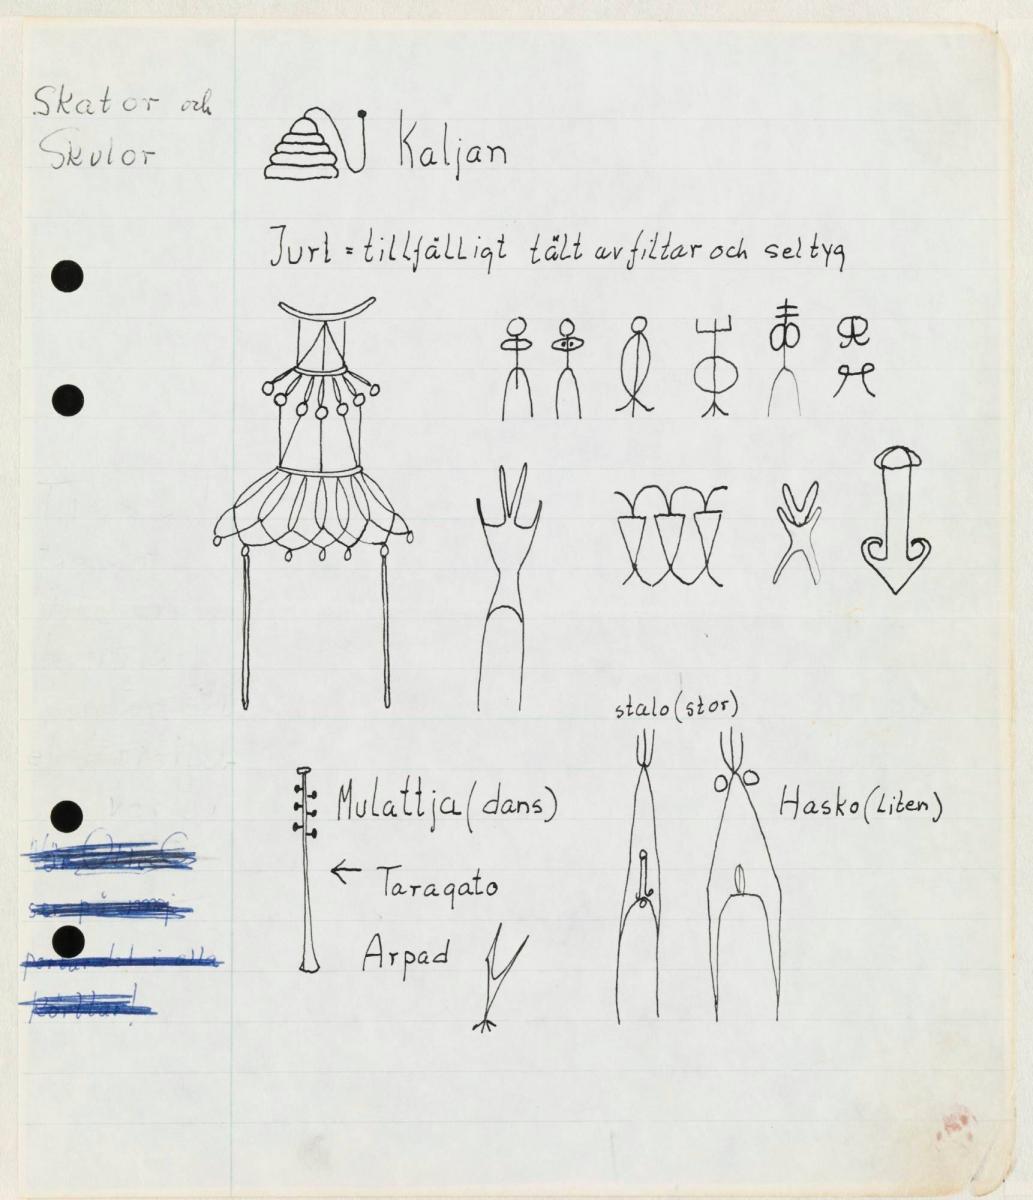 Skator och
Skulor
Kaljan
Jurt = tillfälligt tält av filtar och seltyg
stalo (stor)
Mulattja (dans)
Hasko (liten)
← Taragato
Arpad